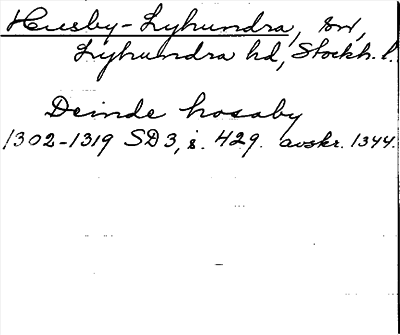 Husby-Lyhundra, sn,
Lyhundra hd, Stockh. l.
Deinde hosaby
1302-1319 SD3, s. 429. avskr. 1344.